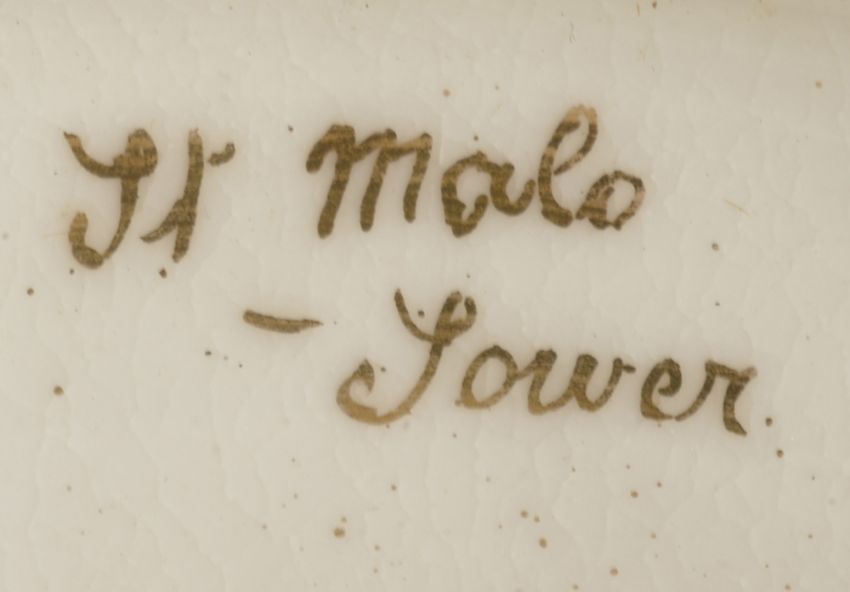 St Malo
- Sower